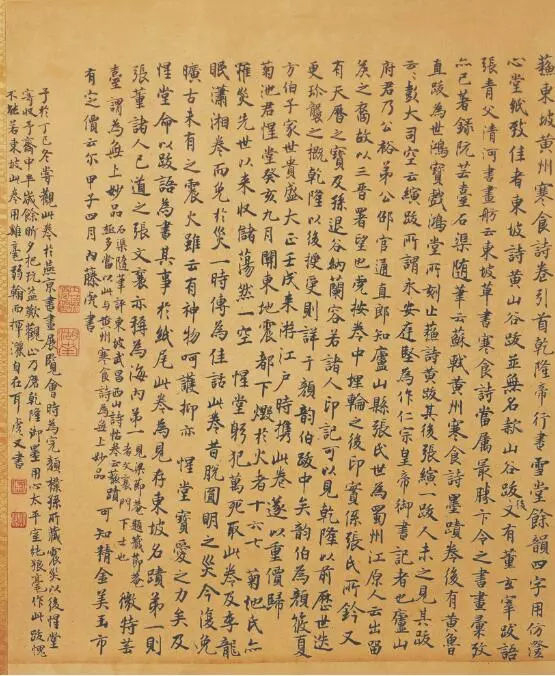 蘇東坡黃州寒食詩卷引首乾隆帝行書雪堂餘韻四字用仿澄
心堂紙致佳者東坡詩黃山谷跋並無名款山谷跋後又有董玄宰跋語
張青父清河書畫舫云東坡草書寒食詩當屬最勝卞令之書畫彙攷
亦已著錄阮芸臺石渠隨筆云蘇軾黃州寒食詩墨蹟卷後有黃魯
直跋為世鴻寶戲鴻堂所刻止蘇詩黃跋其後張縯一跋人未之見其跋
云云彭大司空云縯跋所謂永安庭堅為作仁宗皇帝御書記者也廬山
府君乃公裕弟公邵官通直郎知廬山縣張氏世為蜀州江原人云出留
矦之裔故以三晉署望也按卷中埋輪之後印實係張氏所鈐又
有天曆之寶及孫退谷納蘭容若諸人印記可以見乾隆以前歷世迭
更珍襲之概乾隆以後授受則詳于顏韻伯跋中矣韵伯為顏筱夏
方伯子家世貴盛大正壬戌來游江戶時携此卷遂以重價歸
菊池君惺堂癸亥九月關東地震都下燬於火者十六七 菊池氏亦
罹災先世以來收儲蕩然一空 惺堂躬犯萬死取此卷及李龍
眠瀟湘卷而免於災一時傳為佳話此卷昔脫圓明之災今復免
曠古未有之震火雖云有神物呵護抑亦 惺堂寶愛之力矣及
惺堂命以跋語為書其事於紙尾此卷為見存東坡名蹟第一則
張董諸人已道之張文襄亦稱為海內第一見梁節菴題籤節菴者文襄門下士也 微特芸
臺謂為無上妙品石渠隨筆評東坡武昌西山詩帖卷云蘇蹟極多當以此與黃州寒食詩為無上妙品 可知精金美玉市
有定價云尔甲子四月內藤虎書
予於丁巳冬嘗觀此卷於燕京書畫展覽會時為完顏樸孫所藏震災以後惺堂
寄收予齋中半歲餘昕夕把玩益歎觀止乃磨乾隆御墨用心太平室純狼毫作此跋愧
不能若東坡此卷用雞毫弱翰而揮灑自在耳虎又書